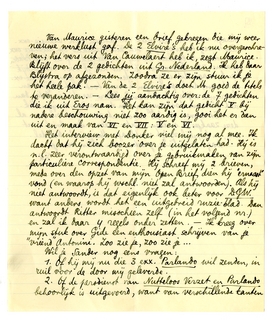 Van Maurice gisteren een brief gekregen die mij weer
nieuwe werklust gaf. De 2 Elvire's heb ik nu overgeschre-
ven; het vers uit Van Cauwelaert heb ik, zegt Maurice.
Blijft over de 2 gedichten uit Gr. Nederland. Ik heb daar
Blijstra op afgezonden. Zoodra ze er zijn stuur ik je
het heele pak. — Van de 2 Elvire's dacht M. goed de titels
te veranderen. — Lees jij aandachtig over de 7 gedichten
die ik uit Erog nam. Het kan zijn dat gedicht V bij
nadere beschouwing niet zoo aardig is, gooi het er dan
uit en maak van VI en VII V en VI.
Het interview met Donker viel mij nog al mee. Ik
dacht dat hij zich boozer over je uitgelaten had. Hij is
n.l. zeer verontwaardigd over je gebruikmaken van zijn
particuliere correspondentie. Hij schreef mij 2 brieven,
mets over den opzet van mijn Open Brief den hij ernstig
vond (en waarop hij direct nu zal antwoorden). Als hij
niet antwoordt, is het eigenlijk ook beter voor D.G.W.
want anders wordt het een uitgebreid ruzie-blad. Dan
antwoordt Ritter misschien zelf (in het volgend nr.)
en zal ik daar 4 regels onder zetten. — Ik kreeg over
mijn stuk over Gide een enthousiast schrijven van je
"vriend Antoine. Zoo zie je, zoo zie je ...
Wil je Sander nog eens vragen:
1. Of hij mij nu die 3 exx. Parlando wil zenden, in
ruil voor de door mij geleverde.
2. Of de persdienst van Nutteloos Verzet en Parlando
behoorlijk is uitgevoerd, want van verschillende kanten